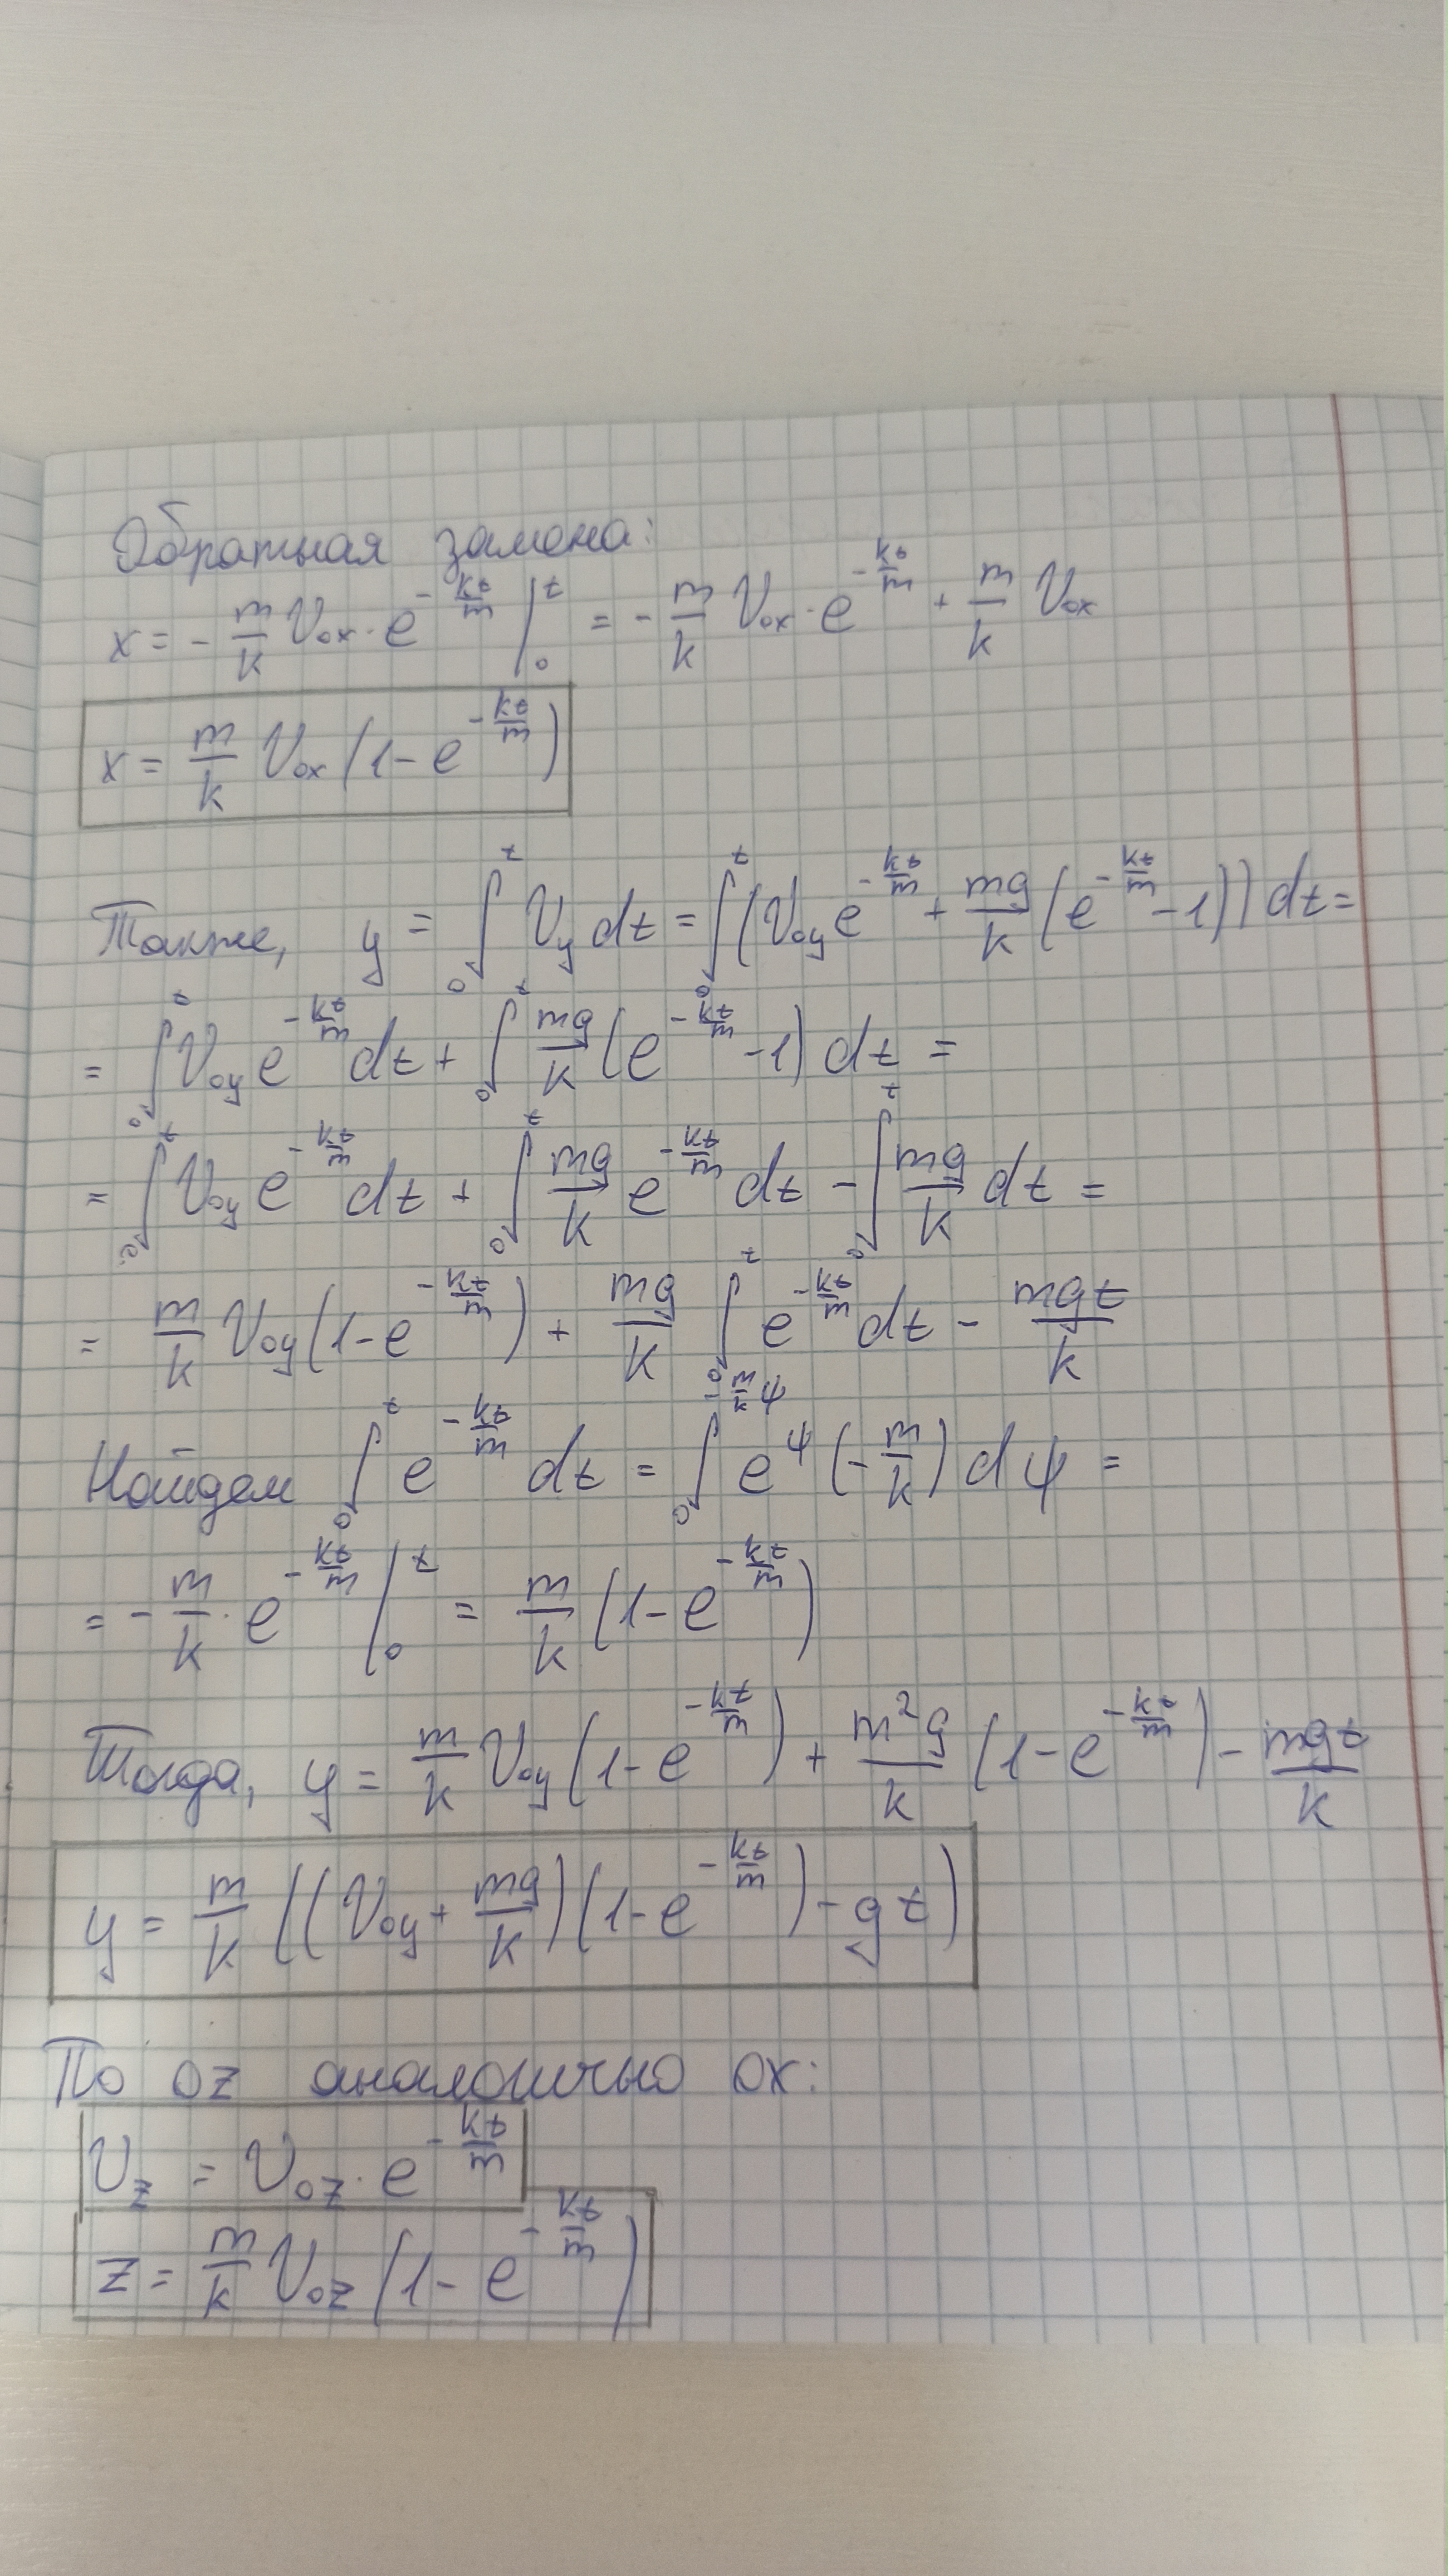 Обратная замена:
x = - m/k V₀ₓ · e^(-kt/m) |₀^t = - m/k V₀ₓ · e^(-kt/m) + m/k V₀ₓ
x = m/k V₀ₓ (1 - e^(-kt/m))
Также, y = ∫₀^t V_y dt = ∫₀^t (V₀y e^(-kt/m) + mg/k (e^(-kt/m) - 1)) dt =
= ∫₀^t V₀y e^(-kt/m) dt + ∫₀^t mg/k (e^(-kt/m) - 1) dt =
= ∫₀^t V₀y e^(-kt/m) dt + ∫₀^t mg/k e^(-kt/m) dt - ∫₀^t mg/k dt =
= m/k V₀y (1 - e^(-kt/m)) + mg/k ∫₀^t e^(-kt/m) dt - mgt/k
Найдем ∫₀^t e^(-kt/m) dt = ∫₀^(-m/k ψ) e^ψ (-m/k) dψ =
= - m/k · e^(-kt/m) |₀^t = m/k (1 - e^(-kt/m))
Тогда, y = m/k V₀y (1 - e^(-kt/m)) + m²g/k (1 - e^(-kt/m)) - mgt/k
y = m/k ((V₀y + mg/k)(1 - e^(-kt/m)) - gt)
По oz аналогично ox:
V_z = V₀z · e^(-kt/m)
z = m/k V₀z (1 - e^(-kt/m))